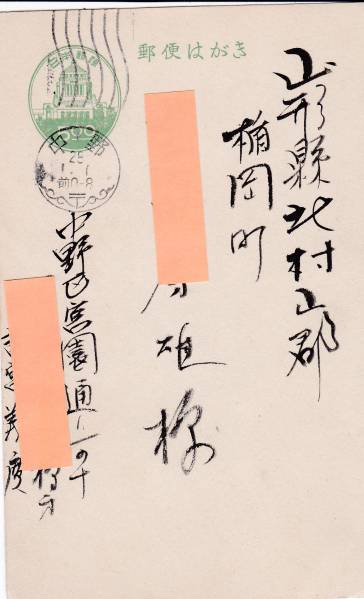 郵便はがき
日本郵便
中野
25
1.1
前0-8
山形縣北村山郡
楯岡町
雄様
中野区宮園通り一の十
様方